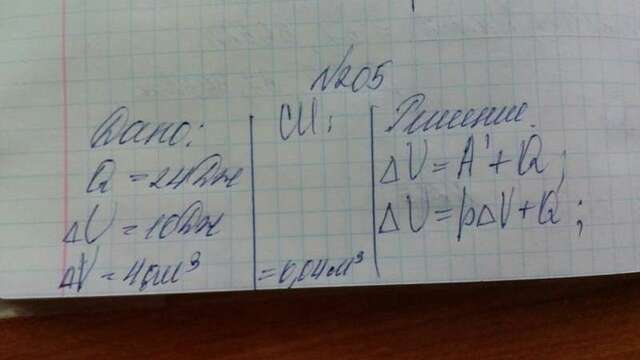 №205
Дано:
Q = 24Дж
ΔU = 10Дж
ΔV = 4дм³
СИ:
= 0,04м³
Решение.
ΔU = A' + Q;
ΔU = pΔV + Q;